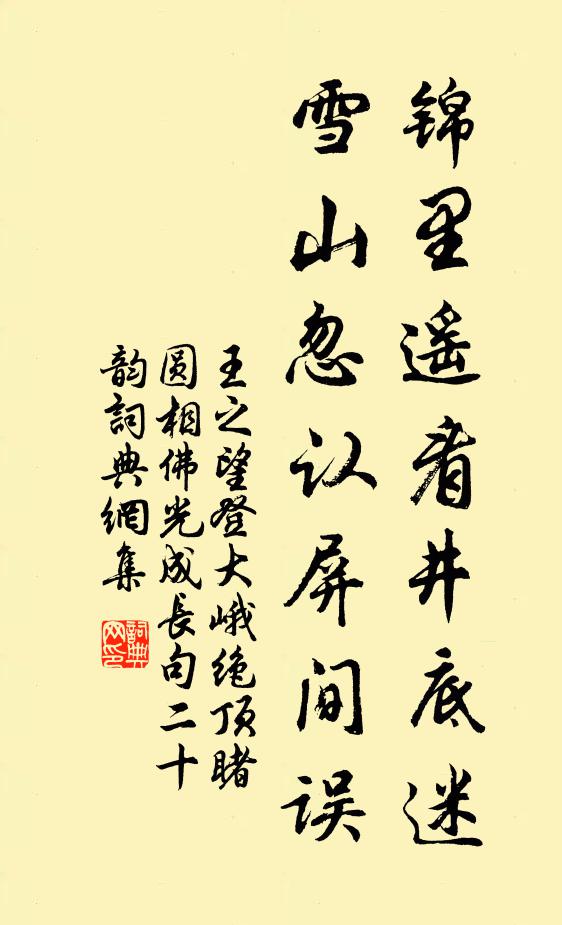 锦里遥看井底迷
雪山忽认屏间误
王之望登大峨绝顶睹
圆相佛光成长句二十
韵詞典網集
詞典
网印